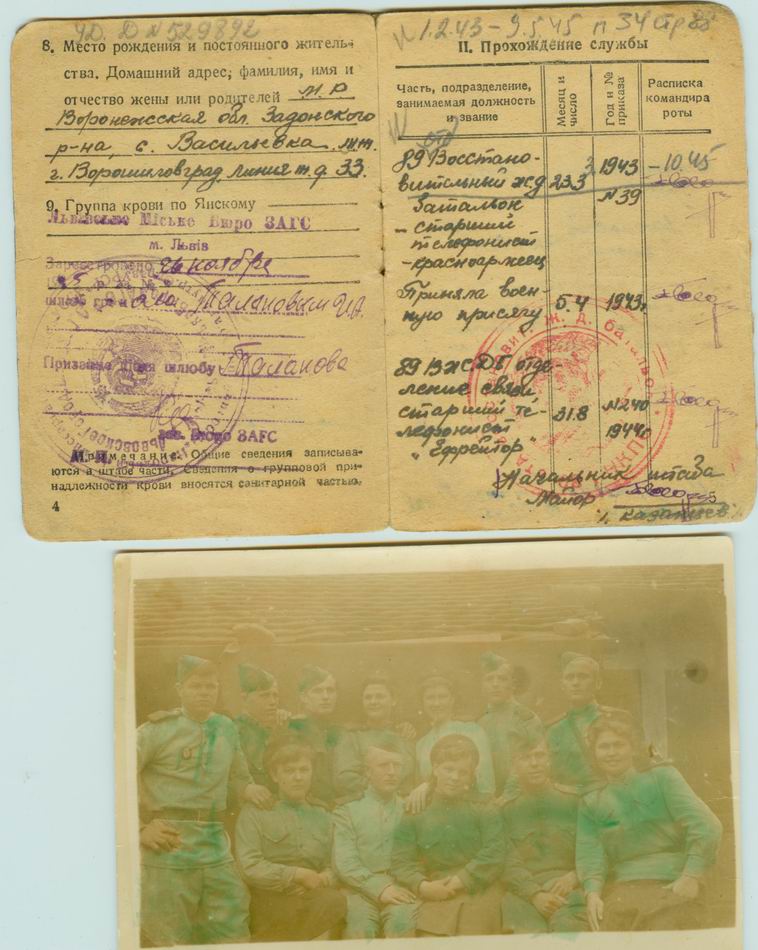 УД. Д № 529892
8. Место рождения и постоянного житель-
ства. Домашний адрес; фамилия, имя и
отчество жены или родителей м.р
Воронежская обл. Задонского
р-на, с. Васильевка. м.ж.
г. Ворошиловград. линия ж.д 33.
9. Группа крови по Янскому
Львівське Міське Бюро ЗАГС
м. Львів
Зареєстровано 26 ноября
Талановским
Прізвище після шлюбу Таланова
Бюро ЗАГС
Примечание. Общие сведения записыва-
ются в штабе части. Сведения о групповой при-
надлежности крови вносятся санитарной частью.
4
1.2.43 – 9.5.45 п 34 стр 88
II. Прохождение службы
Часть, подразделение,
занимаемая должность
и звание
Месяц и
число
Год и №
приказа
Расписка
командира
роты
отд
89 Восстано- 1943 – 10.45
вительный ж.д 23.3
батальон № 39
– старший
телефонист
– красноармеец
Приняла воен-
ную присягу 5.4 1943г.
89 ВЖДБ отде-
ление связи
старший те- 31.8 № 240
лефонист 1944г
"Ефрейтор"
Начальник штаба
Майор